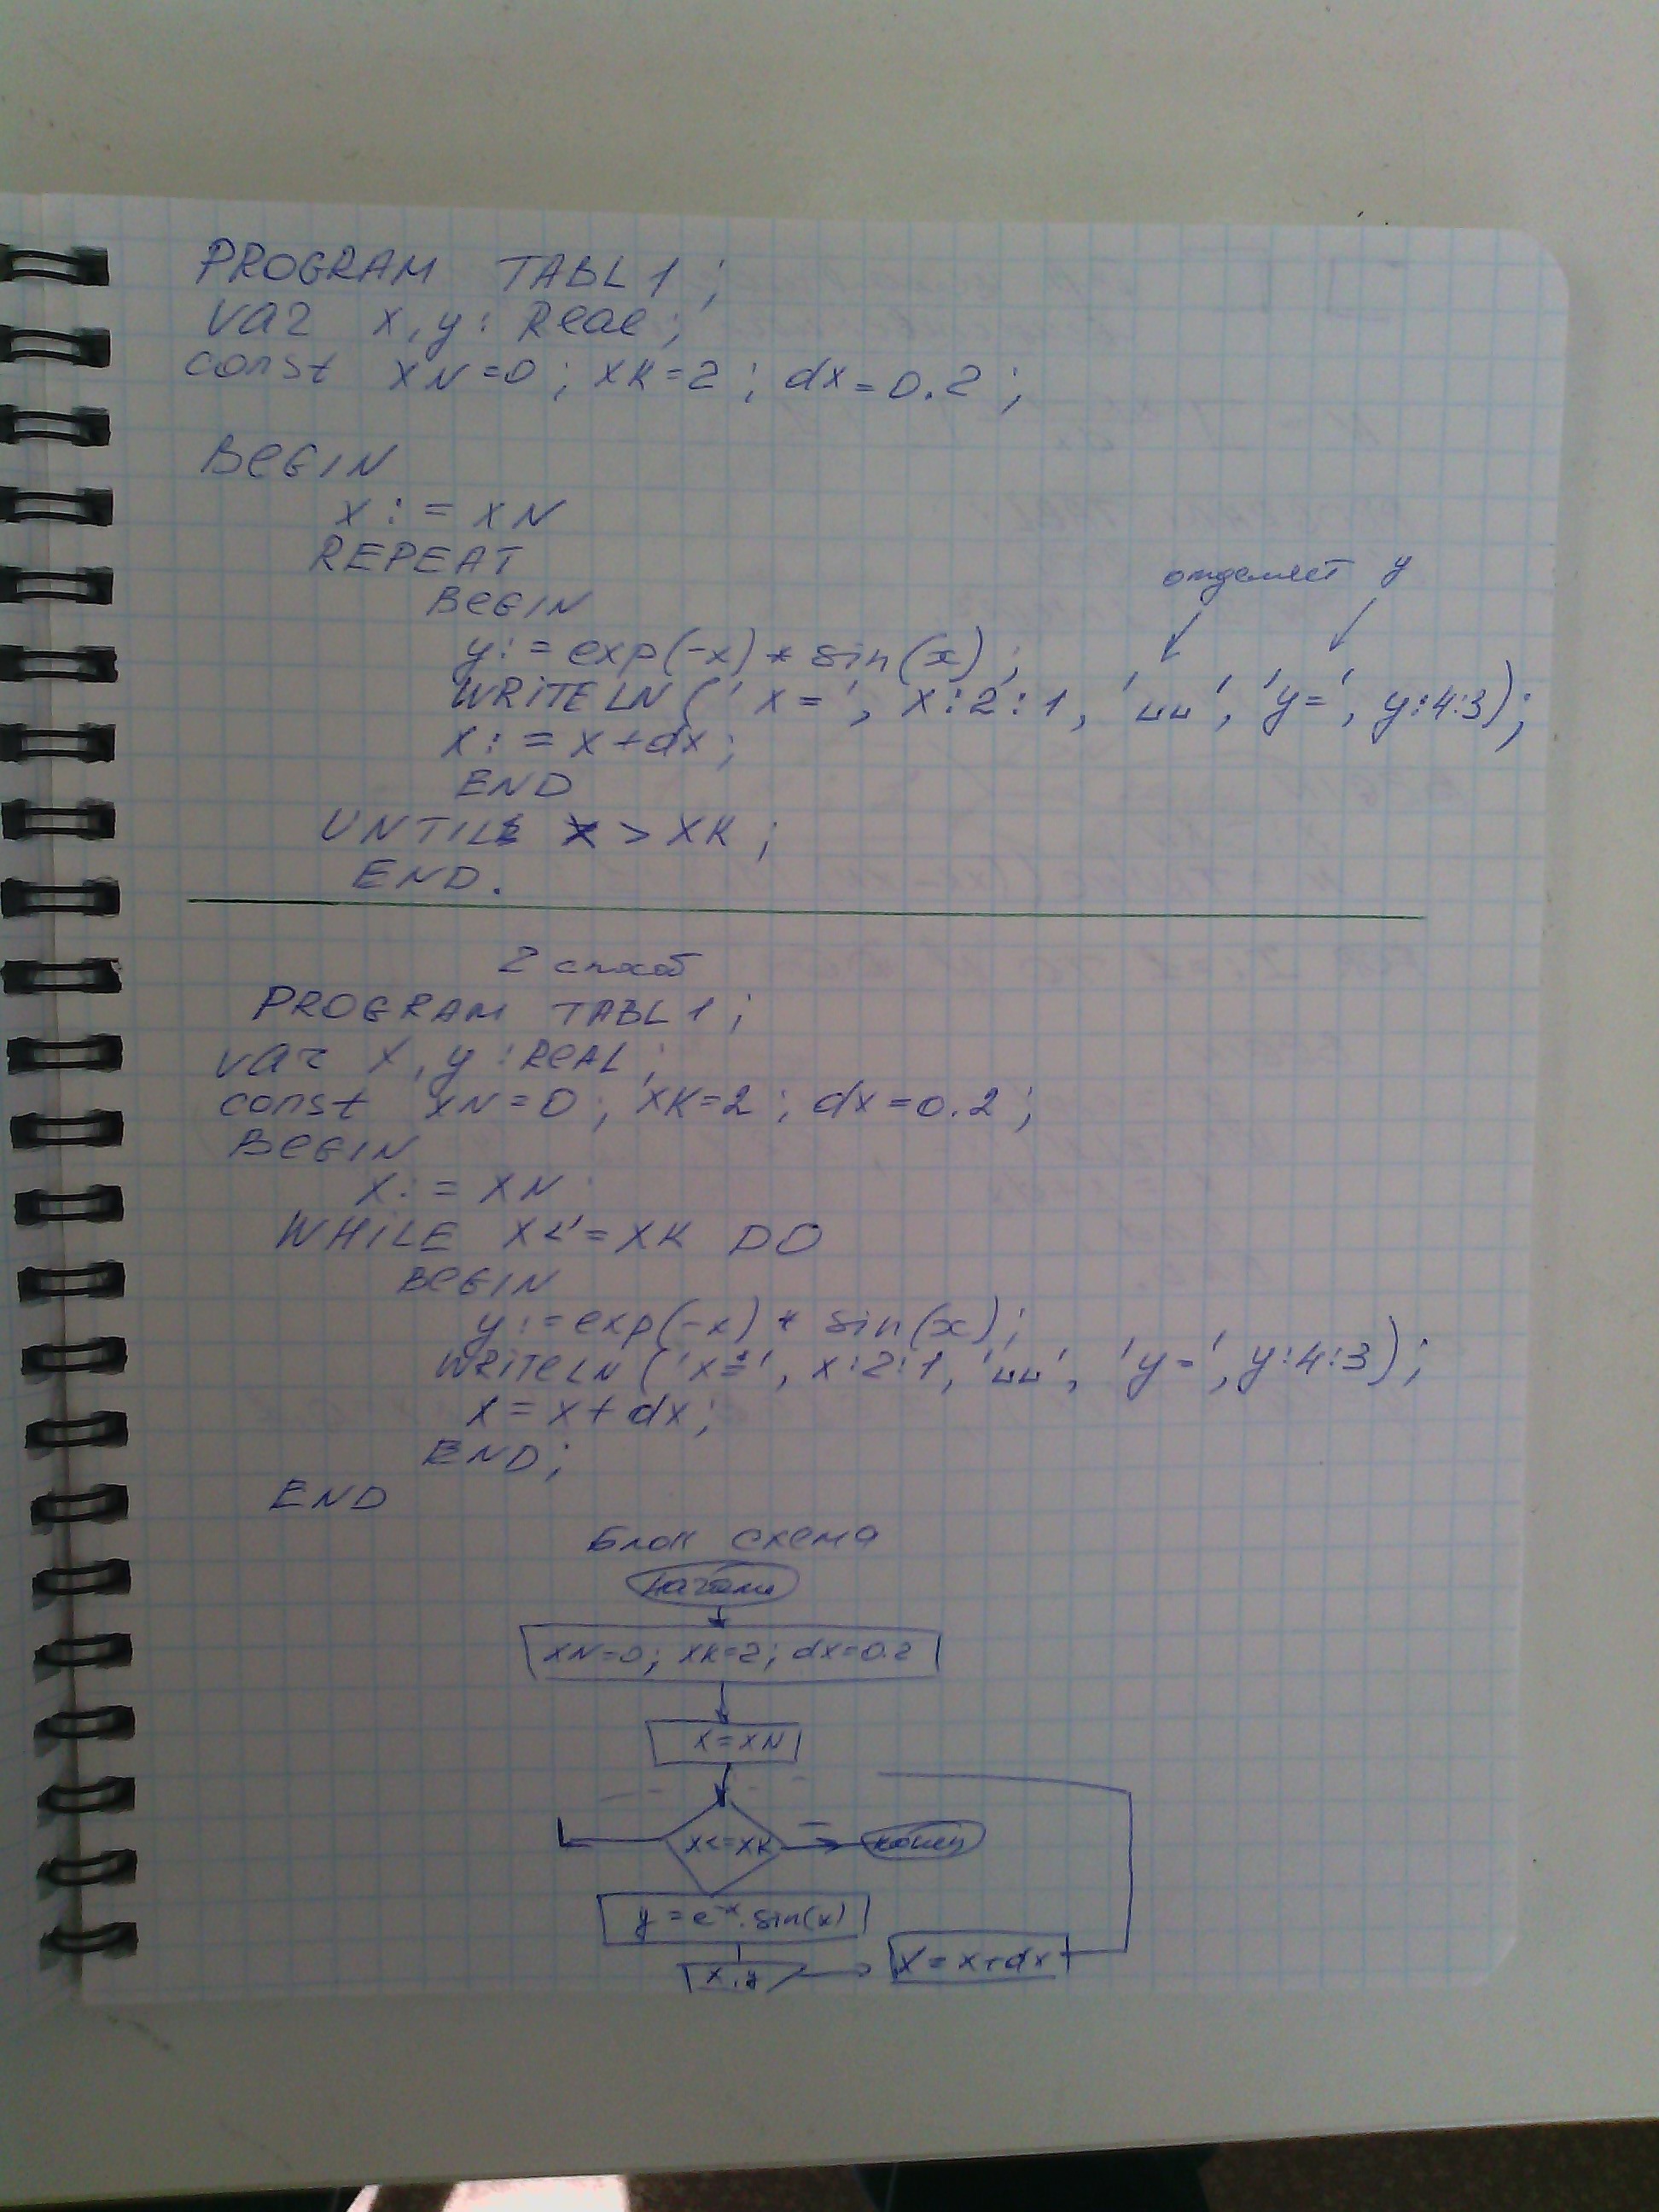 PROGRAM TABL1;
var x,y: Real;
const XN=0; XK=2; dx=0.2;
BEGIN
x:=XN
REPEAT
отделяет y
BEGIN
y:=exp(-x)*sin(x);
WRITELN('x=', x:2:1, '␣␣', 'y=', y:4:3);
x:=x+dx;
END
UNTIL x>XK;
END.
2 способ
PROGRAM TABL1;
var x,y:REAL;
const XN=0; XK=2; dx=0.2;
BEGIN
X:=XN
WHILE X<=XK DO
BEGIN
y:=exp(-x)*sin(x);
WRITELN('x=', x:2:1, '␣␣', 'y=', y:4:3);
x=x+dx;
END;
END
Блок схема
начало
XN=0; XK=2; dx=0.2
X=XN
X<=XK
конец
y=e^-x·sin(x)
x,y
X=x+dx